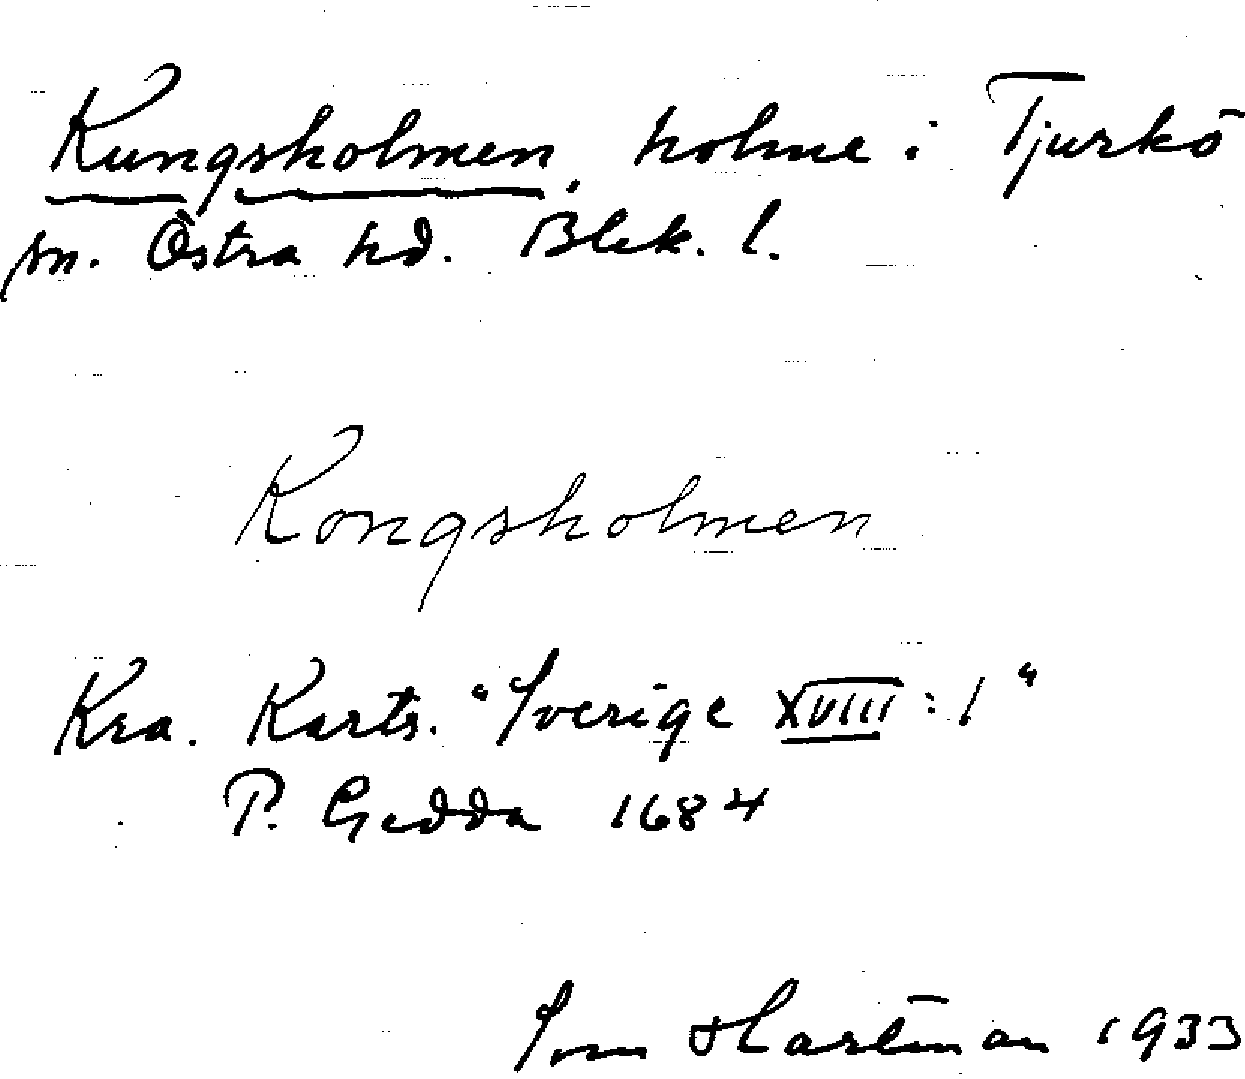 Kungsholmen, holme i Tjurkö
sn. Östra hd. Blek. l.
Kongsholmen
Kra. Karts. "Sverige XVIII:1"
P. Gedda 1684
Sven Hartman 1933